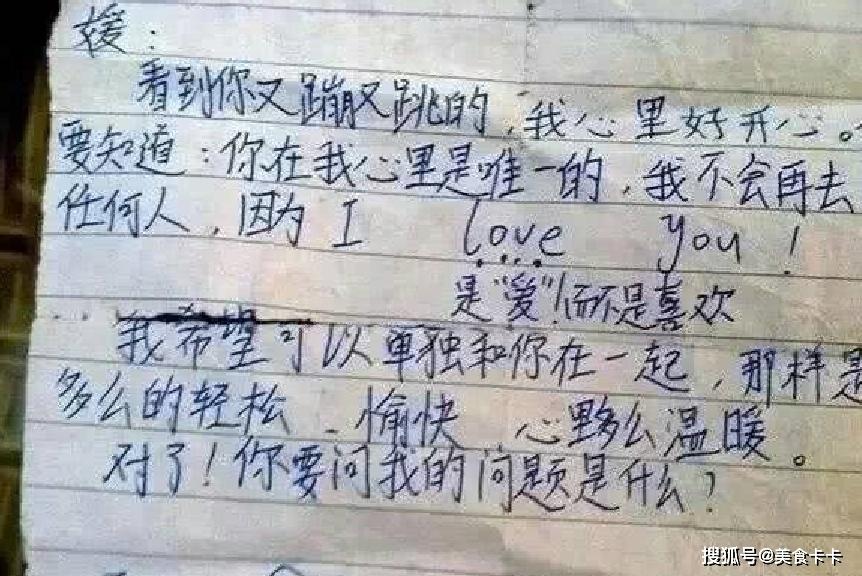 媛：
看到你又蹦又跳的，我心里好开心。
要知道：你在我心里是唯一的，我不会再去
任何人，因为 I love you！
是“爱”！而不是喜欢
我希望可以单独和你在一起，那样是
多么的轻松、愉快 心里多么温暖。
对了！你要问我的问题是什么？
搜狐号@美食卡卡